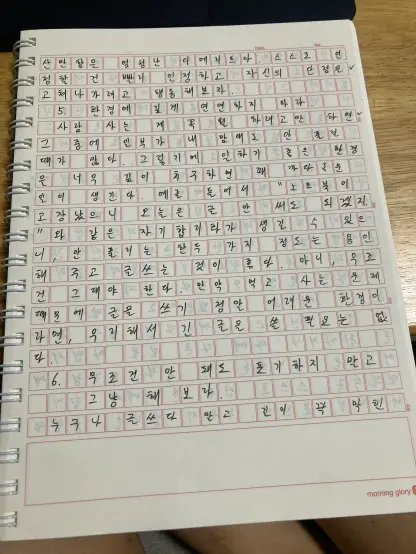 산만함은 엄청난 마이너스다. 스스로 인
정할 건 빨리 인정하고 자신의 단점은
고쳐나가려고 행동해보라.
5. 환경에 길게 연연하지 마라.
사람 사는 게 꼭 뭘 하려고만 하면
그 중에 인복가 내 맘대로 안 흘러
때가 많다. 그렇기에 인하기 좋은 환경
을 너무 깊이 추구하면 때 까다로운
인이 생긴다. 예를 들어서 "노트북이
고장났으니 오늘은 글 안 써도 되겠지
"와 같은 자기합리화가 생길 수 있으
니, 안 흘리는 한두 가지 정도는 용인
해 주고 글쓰는 것이 좋다. 아니, 무조
건 그래야 한다. 만약 먹고 사는 문제
때문에 글을 쓰기 정말 어려운 환경이
라면, 무리해서 긴 글은 쓸 필요는 없
다.
6. 무조건 안 돼도 포기하지 말고
그냥 해보라.
누구나 글쓰다 말고 간이 꽉 막힌
morning glory